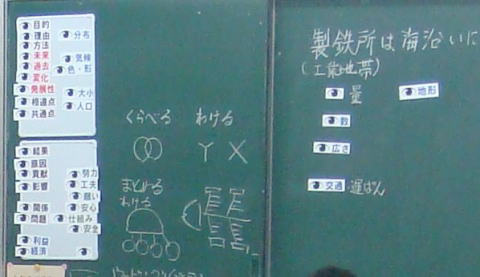 目的
理由
方法
未来
過去
変化
発展性
相違点
共通点
分布
気候
色・形
大小
人口
結果
原因
貢献
影響
関係
問題
利益
経済
努力
工夫
願い
安心
仕組み
安全
くらべる
わける
Y X
まとめる
わける
製鉄所は海沿いに
(工業地帯)
量
地形
数
広さ
交通 運ぱん